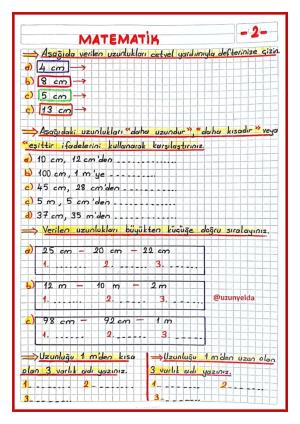 MATEMATİK
- 2 -
Aşağıda verilen uzunlukları cetvel yardımıyla defterinize çizin.
a) 4 cm
b) 8 cm
c) 5 cm
ç) 13 cm
Aşağıdaki uzunlukları "daha uzundur", "daha kısadır" veya
"eşittir" ifadelerini kullanarak karşılaştırınız.
a) 10 cm, 12 cm'den ...........
b) 100 cm, 1 m'ye ...........
c) 45 cm, 28 cm'den ...........
ç) 5 m, 5 cm'den ...........
d) 37 cm, 35 m'den ...........
Verilen uzunlukları büyükten küçüğe doğru sıralayınız.
a) 25 cm - 20 cm - 22 cm
1. ........ 2. ........ 3. ........
b) 12 m - 10 m - 2 m
1. ........ 2. ........ 3. ........
@uzunyelda
c) 98 cm - 92 cm - 1 m
1. ........ 2. ........ 3. ........
Uzunluğu 1 m'den kısa
olan 3 varlık adı yazınız.
1. ........ 2. ........
3. ........
Uzunluğu 1 m'den uzun olan
3 varlık adı yazınız.
1. ........ 2. ........
3. ........